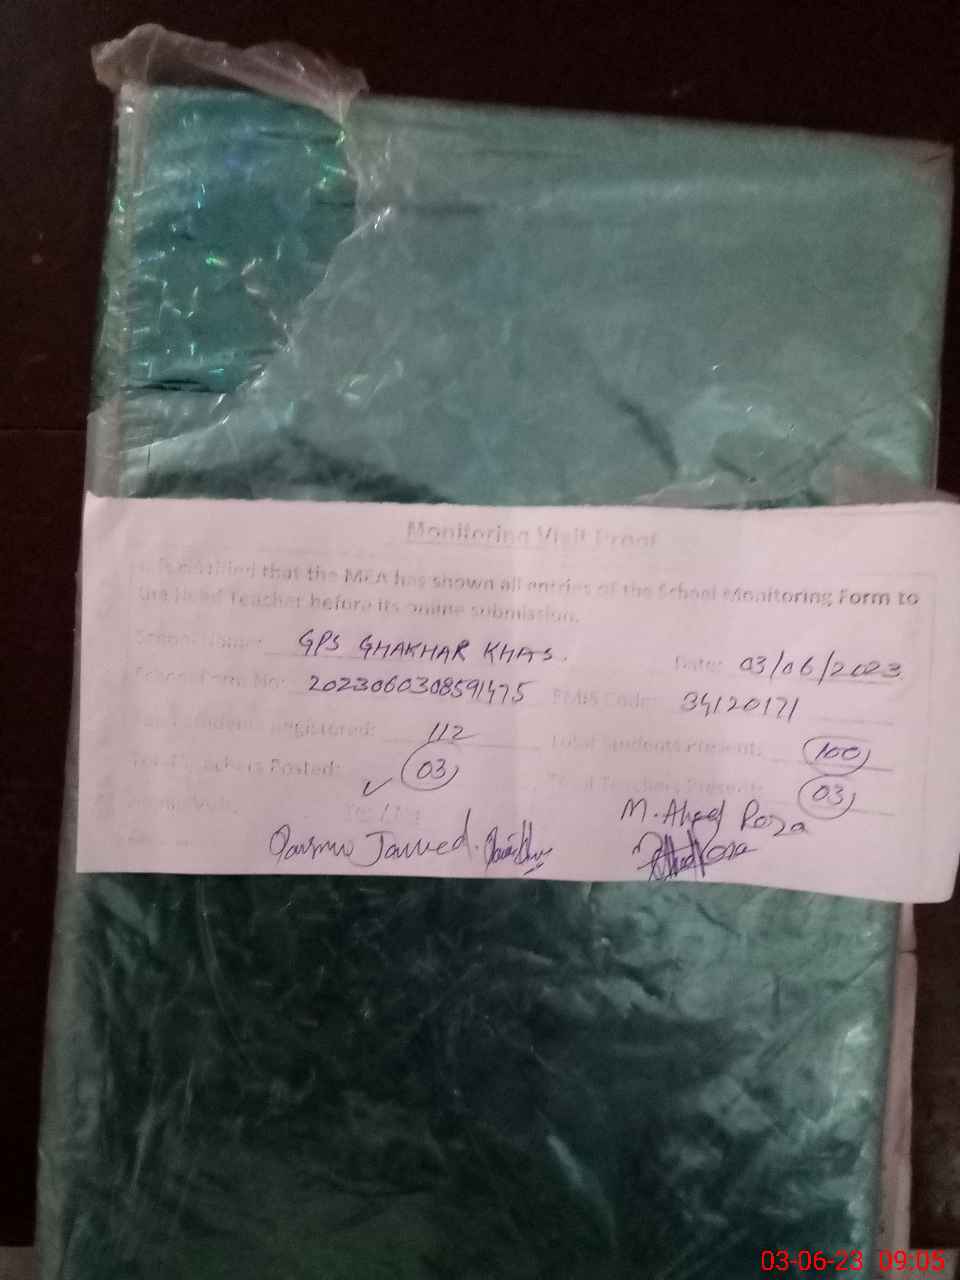 Monitoring Visit Proof
certified that the MEA has shown all entries of the School Monitoring Form to
the Head Teacher before its online submission.
School Name: GPS GHAKHAR KHAS. Date: 03/06/2023
School Form No: 2023060308591475 EMIS Code: 34120171
Students Registered: 112 Total Students Present: 100
Teachers Posted: 03 Total Teachers Present: 03
M. Raza
Javed.
03-06-23 09:05